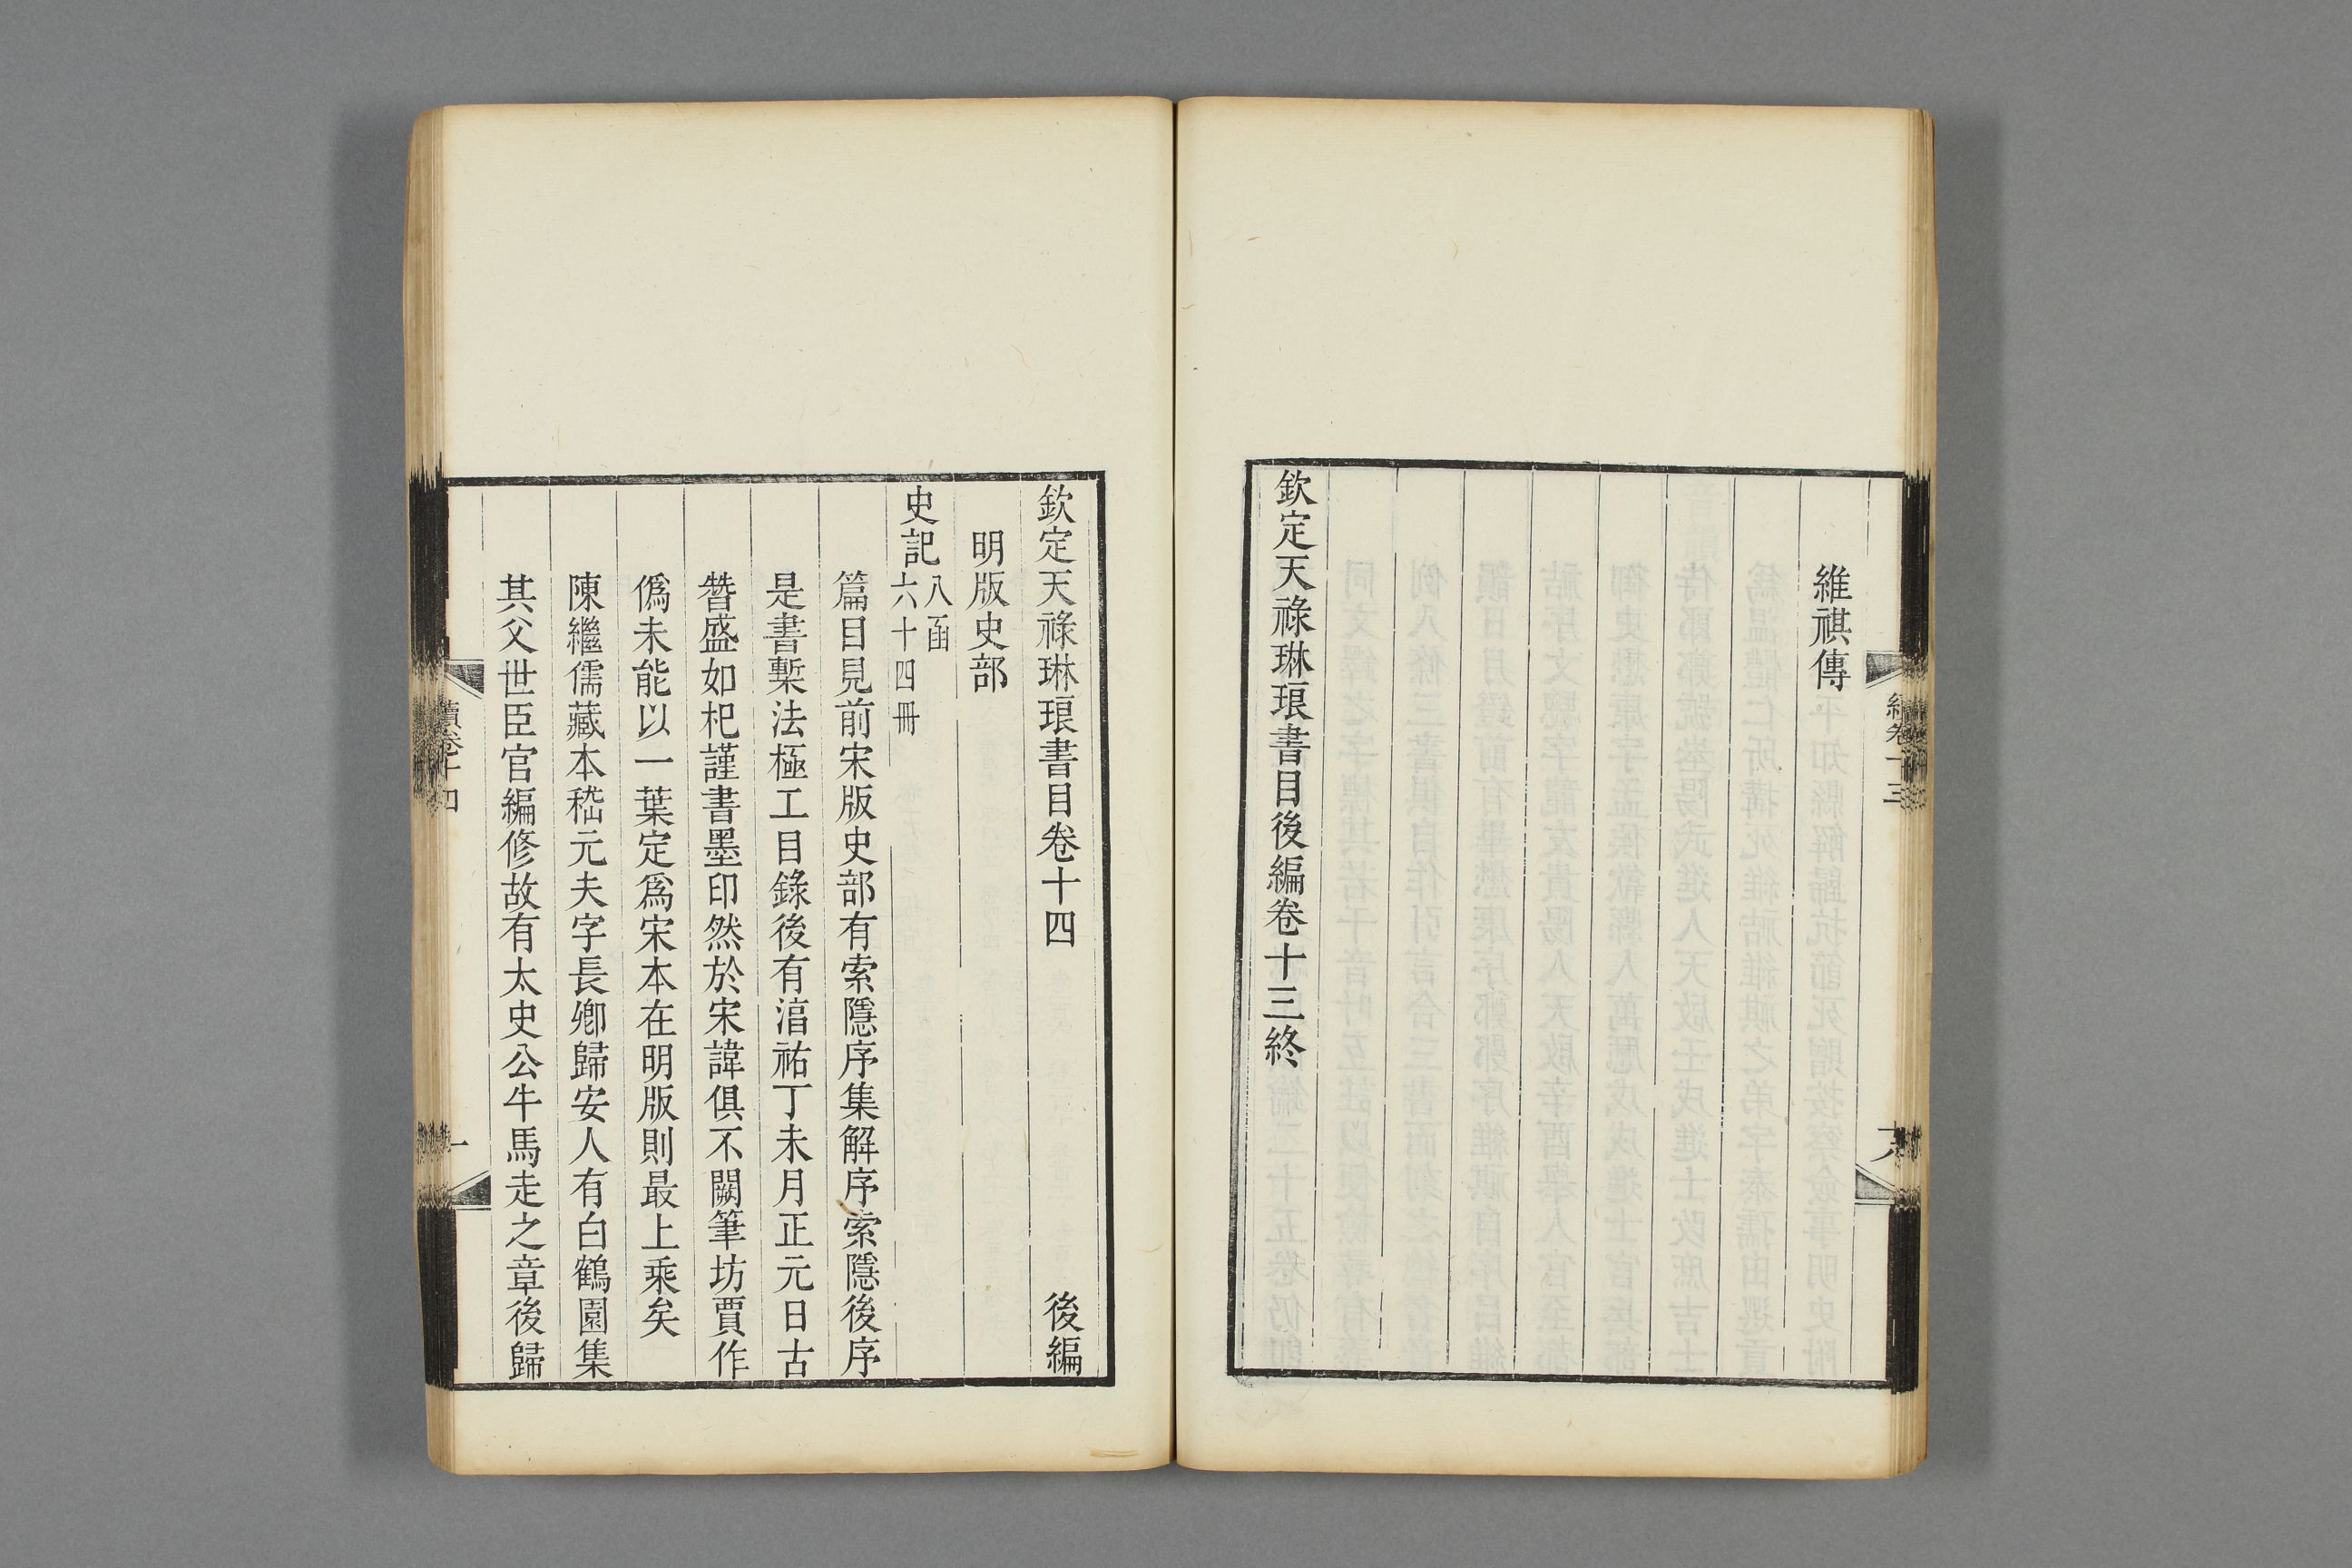 維祺傳
欽定天祿琳琅書目後編卷十三終
欽定天祿琳琅書目卷十四 後編
明版史部
史記八函六十四冊
篇目見前宋版史部有索隱序集解序索隱後序
是書槧法極工目錄後有湻祐丁未月正元日古
朁盛如杞謹書墨印然於宋諱俱不闕筆坊賈作
僞未能以一葉定爲宋本在明版則最上乘矣
陳繼儒藏本嵇元夫字長卿歸安人有白鶴園集
其父世臣官編修故有太史公牛馬走之章後歸
續卷十四
一